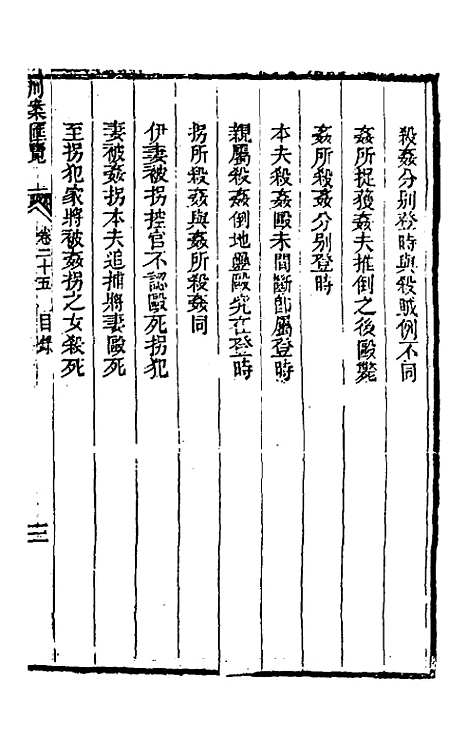 殺姦分別登時與殺賊例不同
姦所捉獲姦夫推倒之後毆斃
姦所殺姦分別登時
本夫殺姦毆未間斷卽屬登時
親屬殺姦倒地疊毆究在登時
拐所殺姦與姦所殺姦同
伊妻被拐控官不認毆死拐犯
妻被姦拐本夫追捕將妻毆死
至拐犯家將被姦拐之女殺死
刑案匯覽
卷二十五 目錄
三